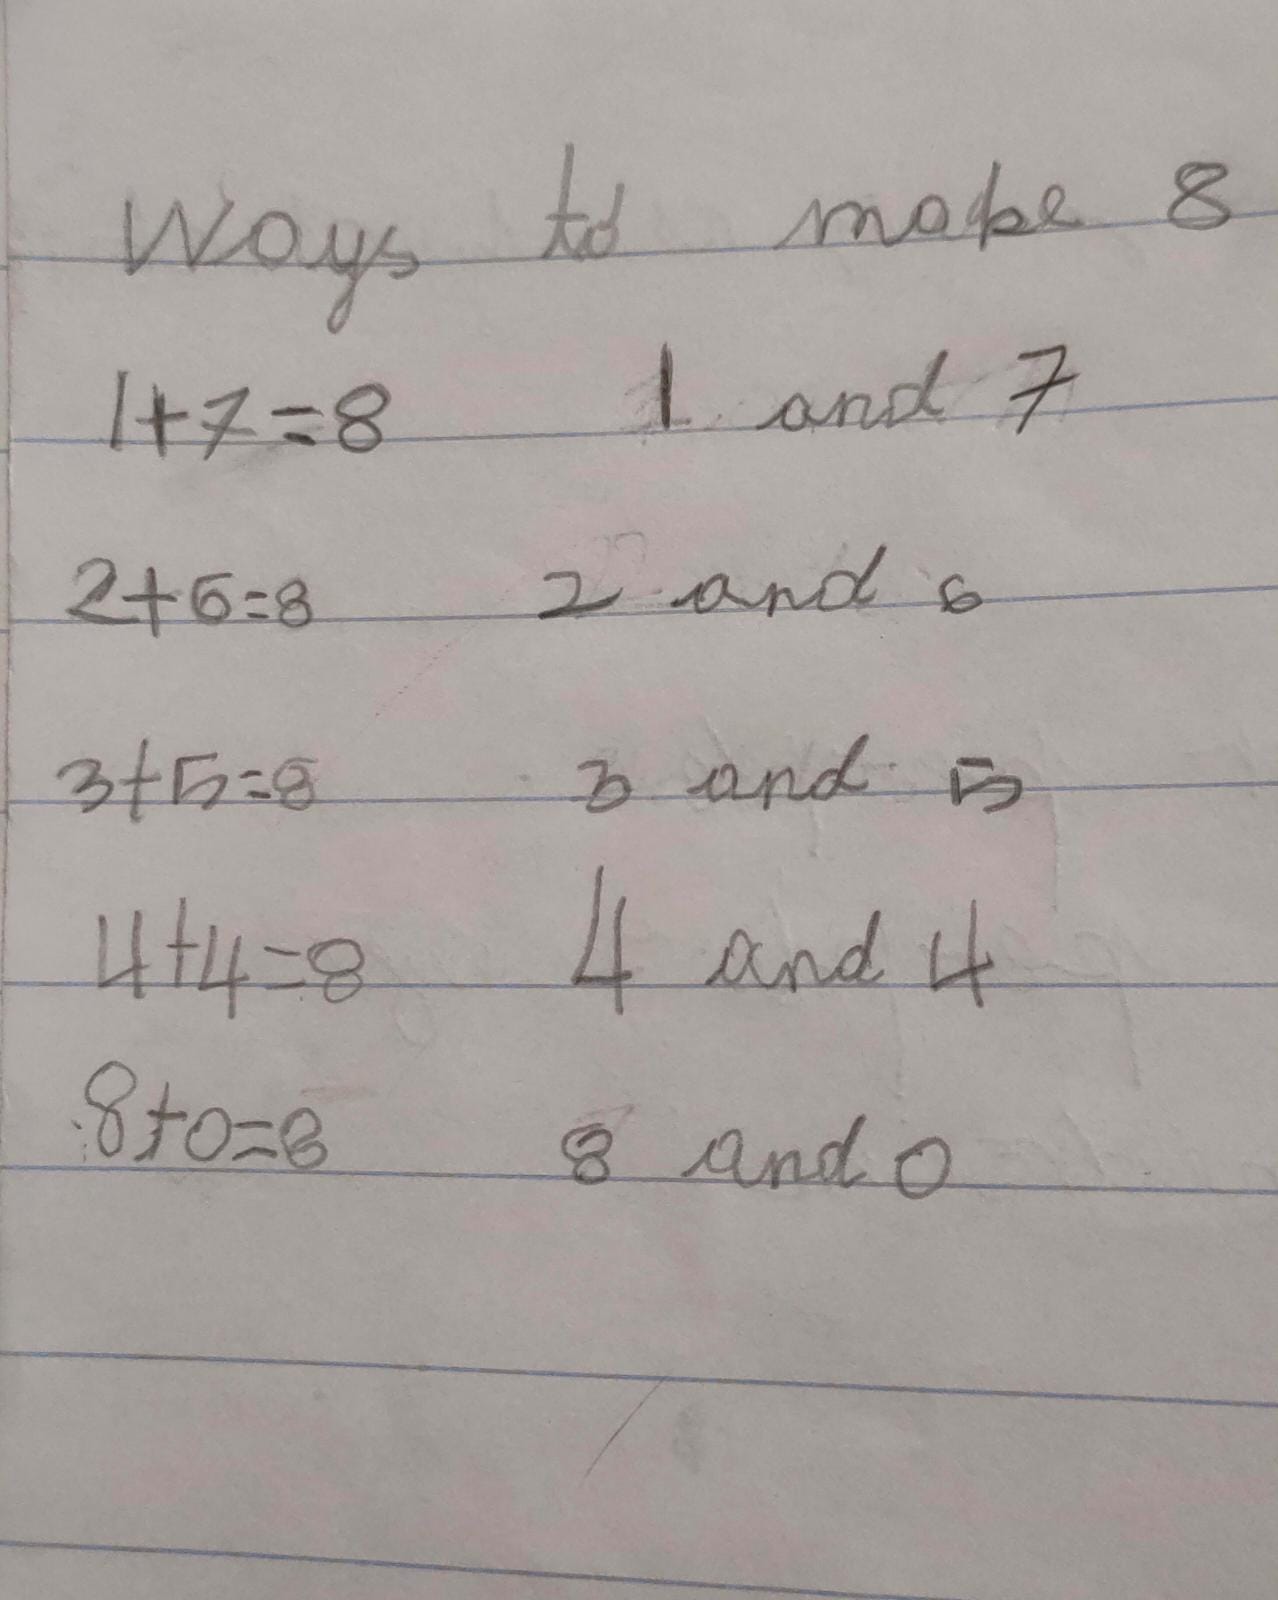 Ways to make 8
1+7=8 1 and 7
2+6=8 2 and 6
3+5=8 3 and 5
4+4=8 4 and 4
8+0=8 8 and 0